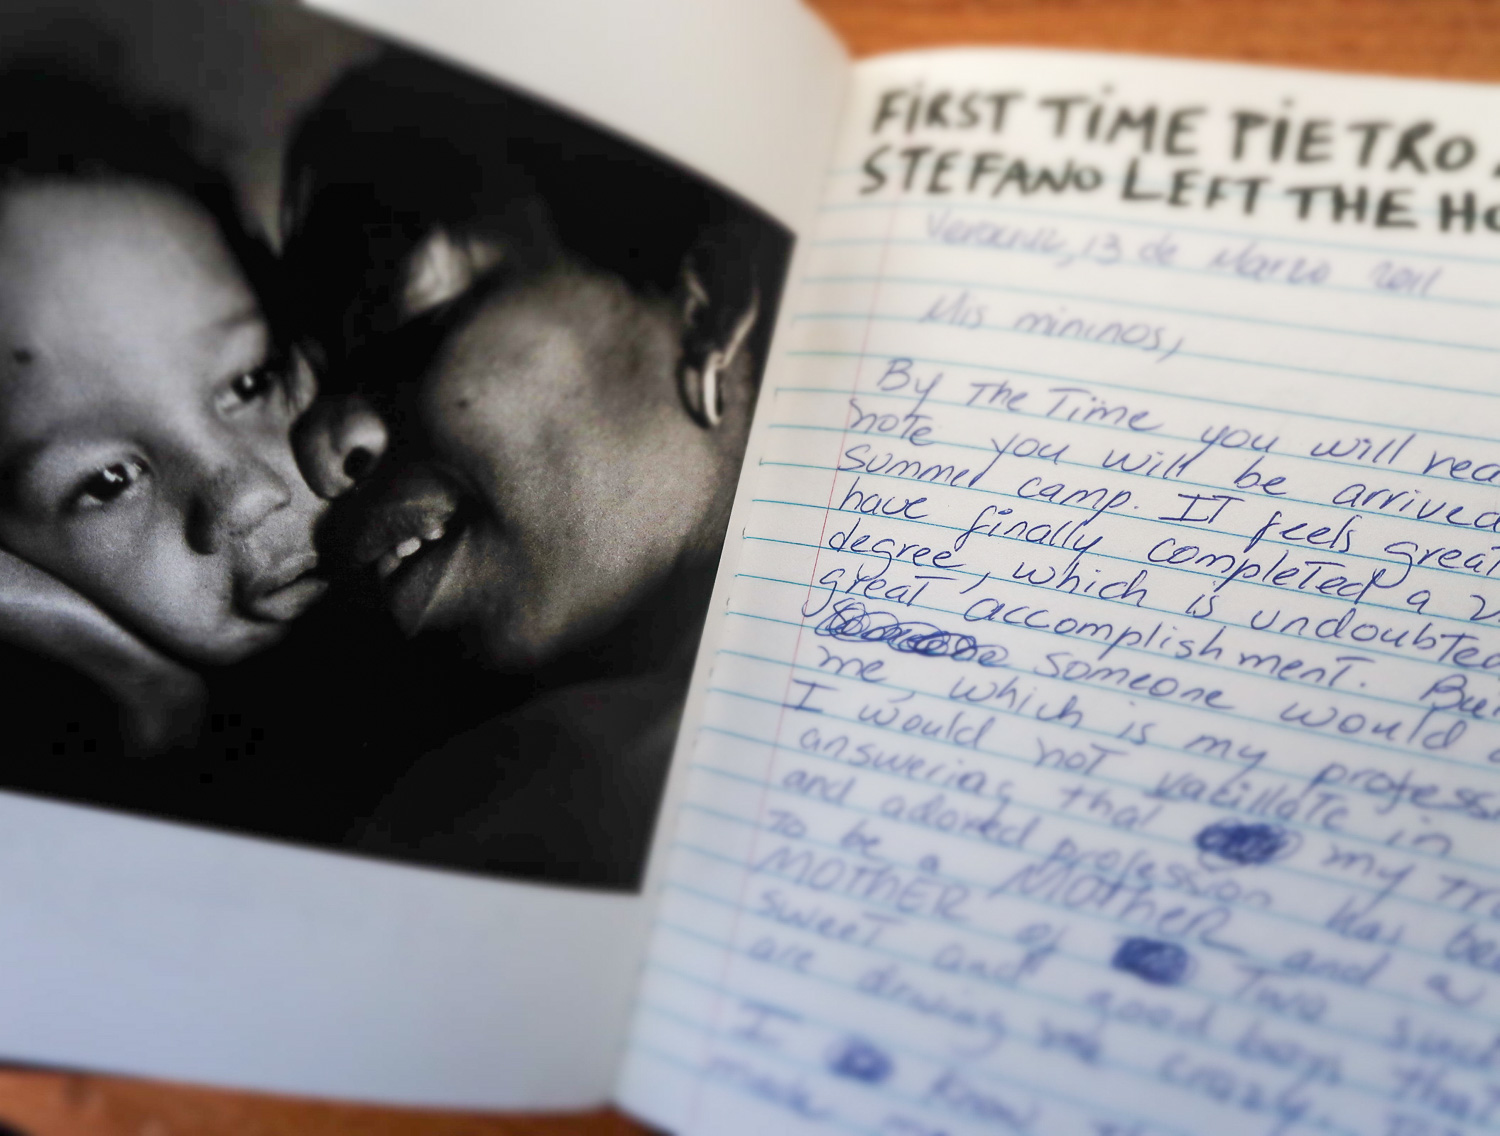 FIRST TIME PIETRO
STEFANO LEFT THE
Veracruz, 13 de Marzo 2011
Mis mininos,
By The Time you will
note you will be arrived
summer camp. IT feels great
have finally completed a
degree, which is
great accomplishment. But
someone would
me, which is my
I would not vacillate in
answering that my
and adored profession has
To be a MOTHER and a
MOTHER of Two such
sweet and good boys that
are driving me crazy.
I know
made me